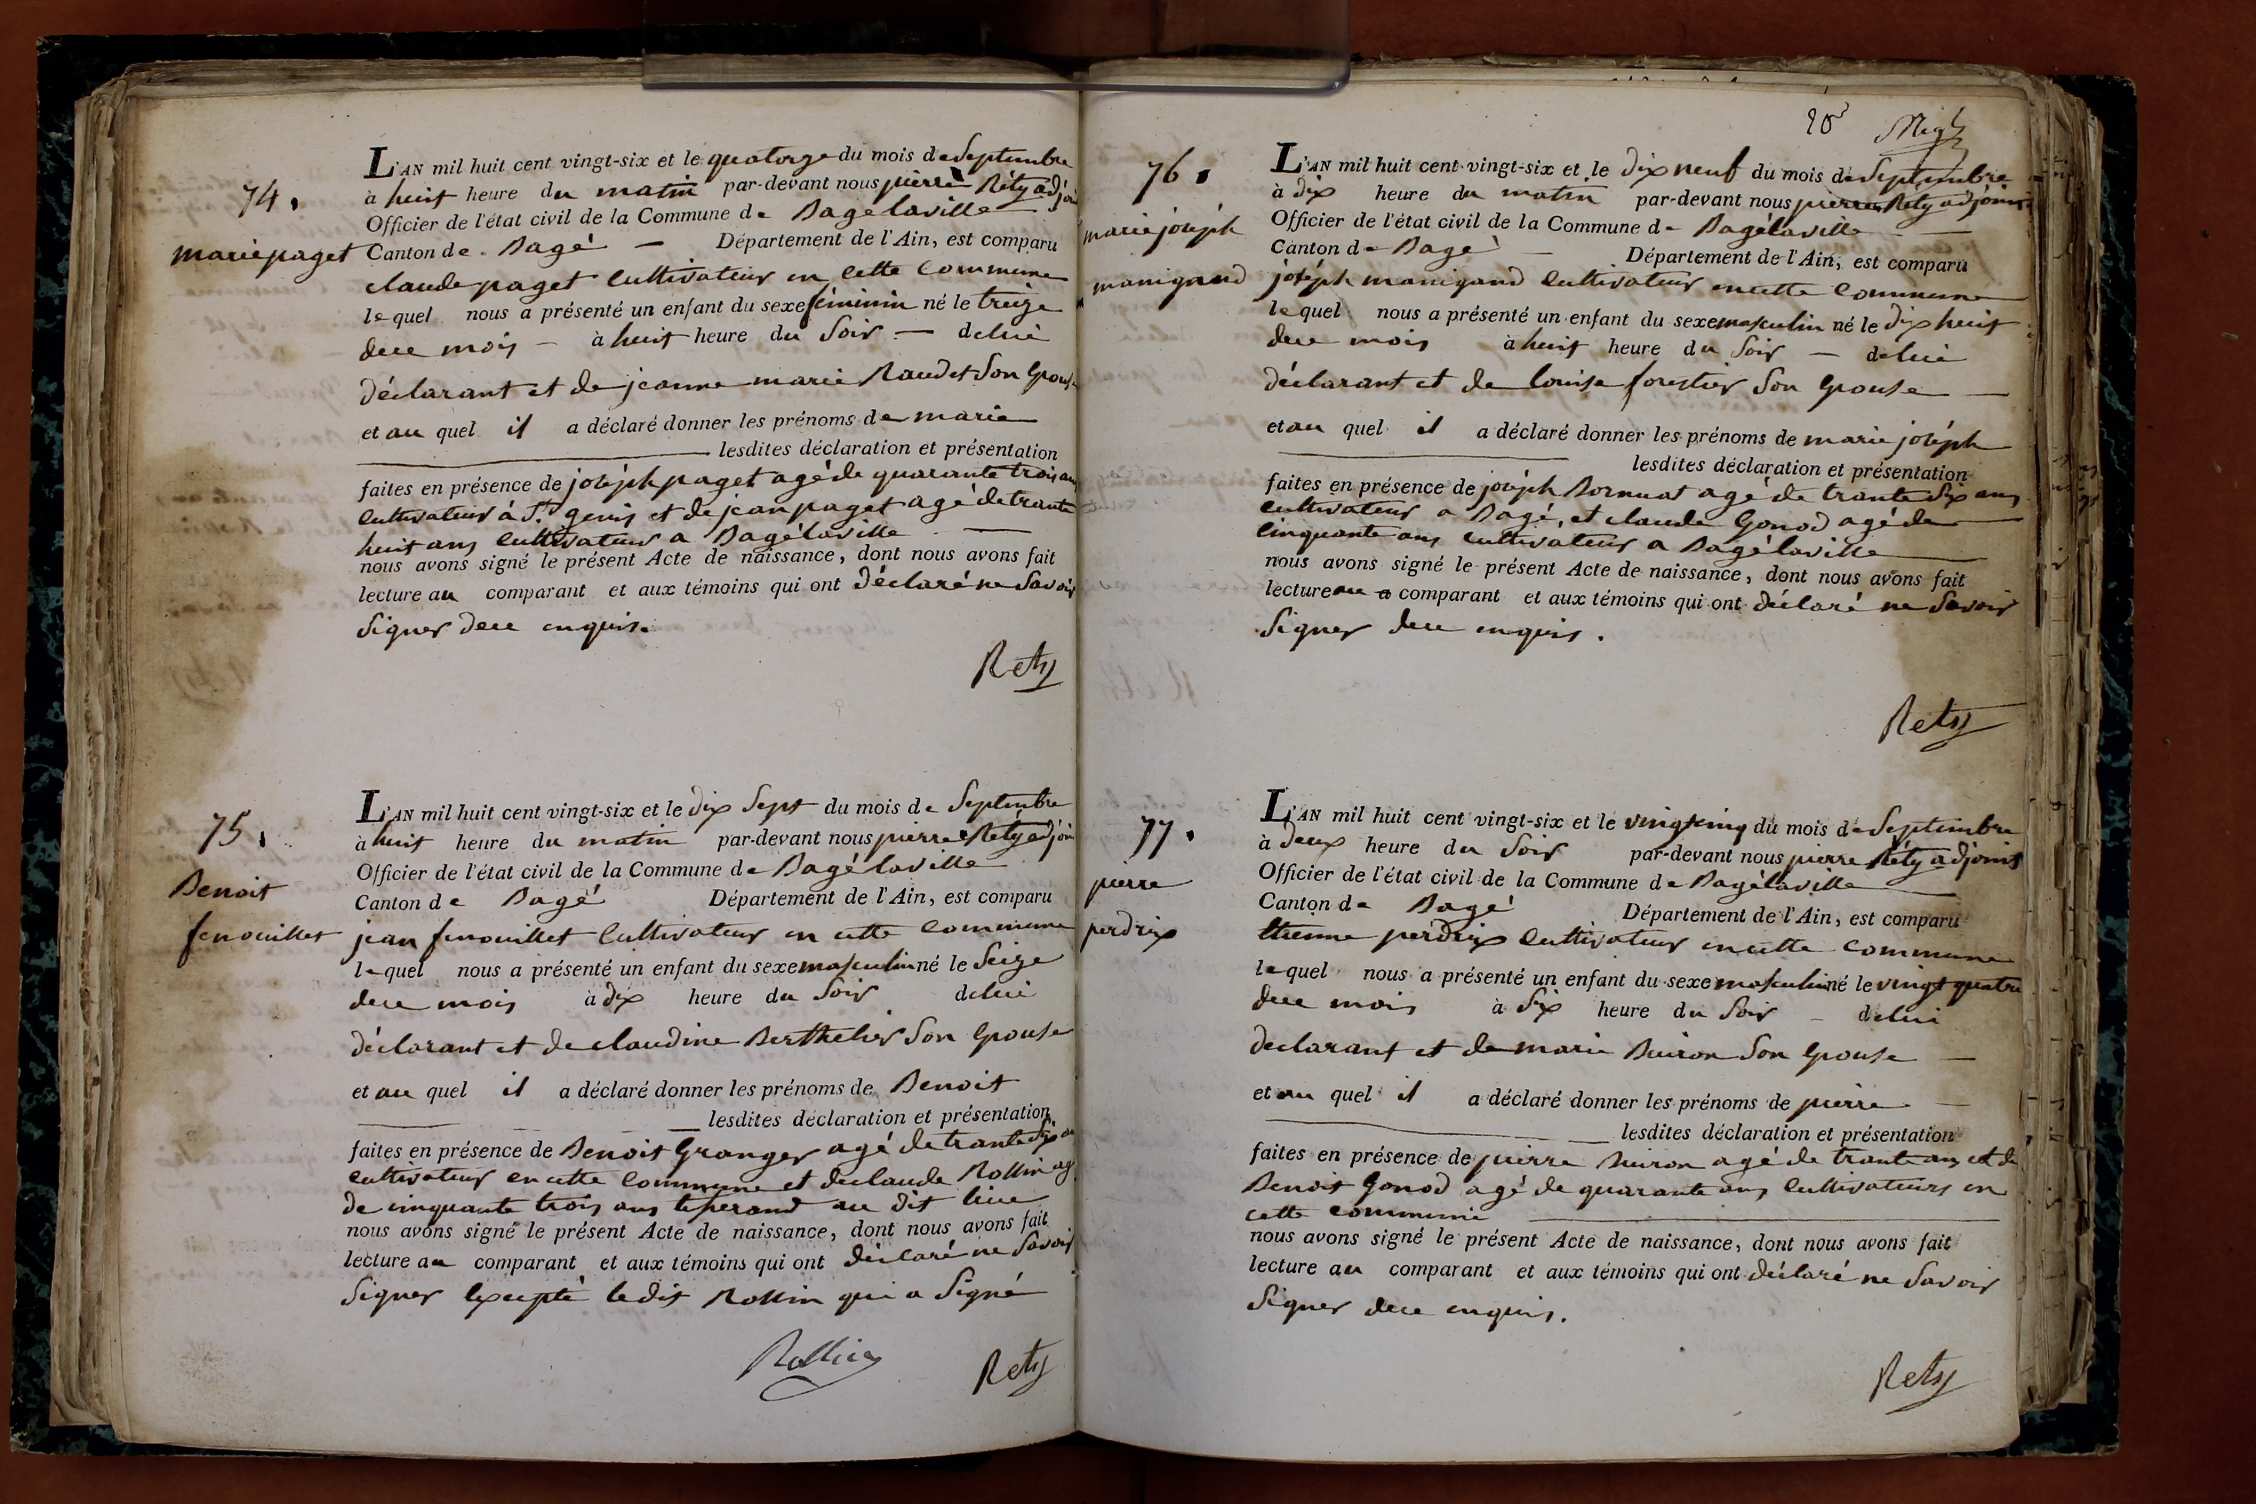 74.
marie paget
L'AN mil huit cent vingt-six et le quatorze du mois de Septembre
à huit heure du matin par-devant nous pierre Réty adjoi
Officier de l'état civil de la Commune de Bagélaville
Canton de Bagé — Département de l'Ain, est comparu
claude paget Cultivateur en Cette Commune
lequel nous a présenté un enfant du sexe féminin né le treize
duce mois — à huit heure du Soir — delui
déclarant et de jeanne marie Raudet Son Epouse
et au quel il a déclaré donner les prénoms de marie
lesdites déclaration et présentation
faites en présence de joséph paget agé de quarante trois ans
Cultivateur à St genis et de jean paget agé de trante
huit ans Cultivateur a Bagélaville
nous avons signé le présent Acte de naissance, dont nous avons fait
lecture au comparant et aux témoins qui ont déclaré ne Savoir
Signer dece enquis.
Rety
75.
Benoit
fenouillet
L'AN mil huit cent vingt-six et le dix Sept du mois de Septembre
à huit heure du matin par-devant nous pierre Réty adjoi
Officier de l'état civil de la Commune de Bagélaville
Canton de Bagé Département de l'Ain, est comparu
jean fenouillet Cultivateur en cette Commune
lequel nous a présenté un enfant du sexe masculin né le Seize
duce mois à dix heure du Soir delui
déclarant et de claudine Berthelier Son Epouse
et au quel il a déclaré donner les prénoms de Benoit
lesdites déclaration et présentation
faites en présence de Benoit Granger agé de trante Six an
cultivateur en cette Commune et declaude Rollin ag
de cinquante trois ans au dit lieu
nous avons signé le présent Acte de naissance, dont nous avons fait
lecture au comparant et aux témoins qui ont déclaré ne Savoir
Signer Excepté ledit Rollin qui a Signé
Rollin Rety
76.
marie joséph
manigand
L'AN mil huit cent vingt-six et le Dix neuf du mois de Septembre
à dix heure du matin par-devant nous pierre Réty adjoint
Officier de l'état civil de la Commune de Bagélaville
Canton de Bagé — Département de l'Ain, est comparu
joséph manigand Cultivateur en cette Commune
lequel nous a présenté un enfant du sexe masculin né le dix huit
duce mois à huit heure du Soir — delui
déclarant et de Louise forestier Son Epouse —
et au quel il a déclaré donner les prénoms de marie joséph
lesdites déclaration et présentation
faites en présence de joséph Bornuat agé de trante Six ans
Cultivateur a Bagé, et claude Gonod agé de
Cinquante ans Cultivateur a Bagélaville
nous avons signé le présent Acte de naissance, dont nous avons fait
lecture au comparant et aux témoins qui ont déclaré ne Savoir
Signer dece enquis.
Rety
77.
pierre
perdrix
L'AN mil huit cent vingt-six et le vingt cinq du mois de Septembre
à deux heure du Soir par-devant nous pierre Réty adjoint
Officier de l'état civil de la Commune de Bagélaville
Canton de Bagé Département de l'Ain, est comparu
Etienne perdrix Cultivateur en cette Commune
lequel nous a présenté un enfant du sexe masculin né le vingt quatre
duce mois à Six heure du Soir — delui
declarant et de marie Buiron Son Epouse —
et au quel il a déclaré donner les prénoms de pierre —
lesdites déclaration et présentation
faites en présence de pierre Buiron agé de trante ans et de
Benoit Gonod agé de quarante ans Cultivateurs en
cette commune
nous avons signé le présent Acte de naissance, dont nous avons fait
lecture au comparant et aux témoins qui ont déclaré ne Savoir
Signer dece enquis.
Rety